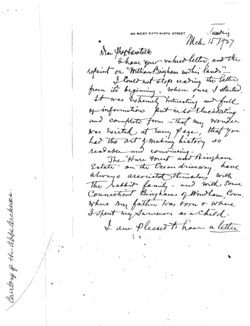 60 WEST FIFTY-NINTH STREET
Tuesday
Mch. 15 1927
Dear
I have your valued letter, and the
reprint or "William Bingham and his lands".
I could not stop reading the letter
from its beginning, when once I started.
It was extremely interesting and full
of information put in so
and complete form - that my wonder
was excited at every page, that you
had the Art of Making history so
readable and convincing.
The and Bingham
Estate on the Ocean driveway have
always associated themselves with
the rabbit family - and with some
Connecticut Binghams of Windham Conn
where my father was born & where
I spent my Summers as a Child.
I am pleased to have a letter
Courtesy of the Archives